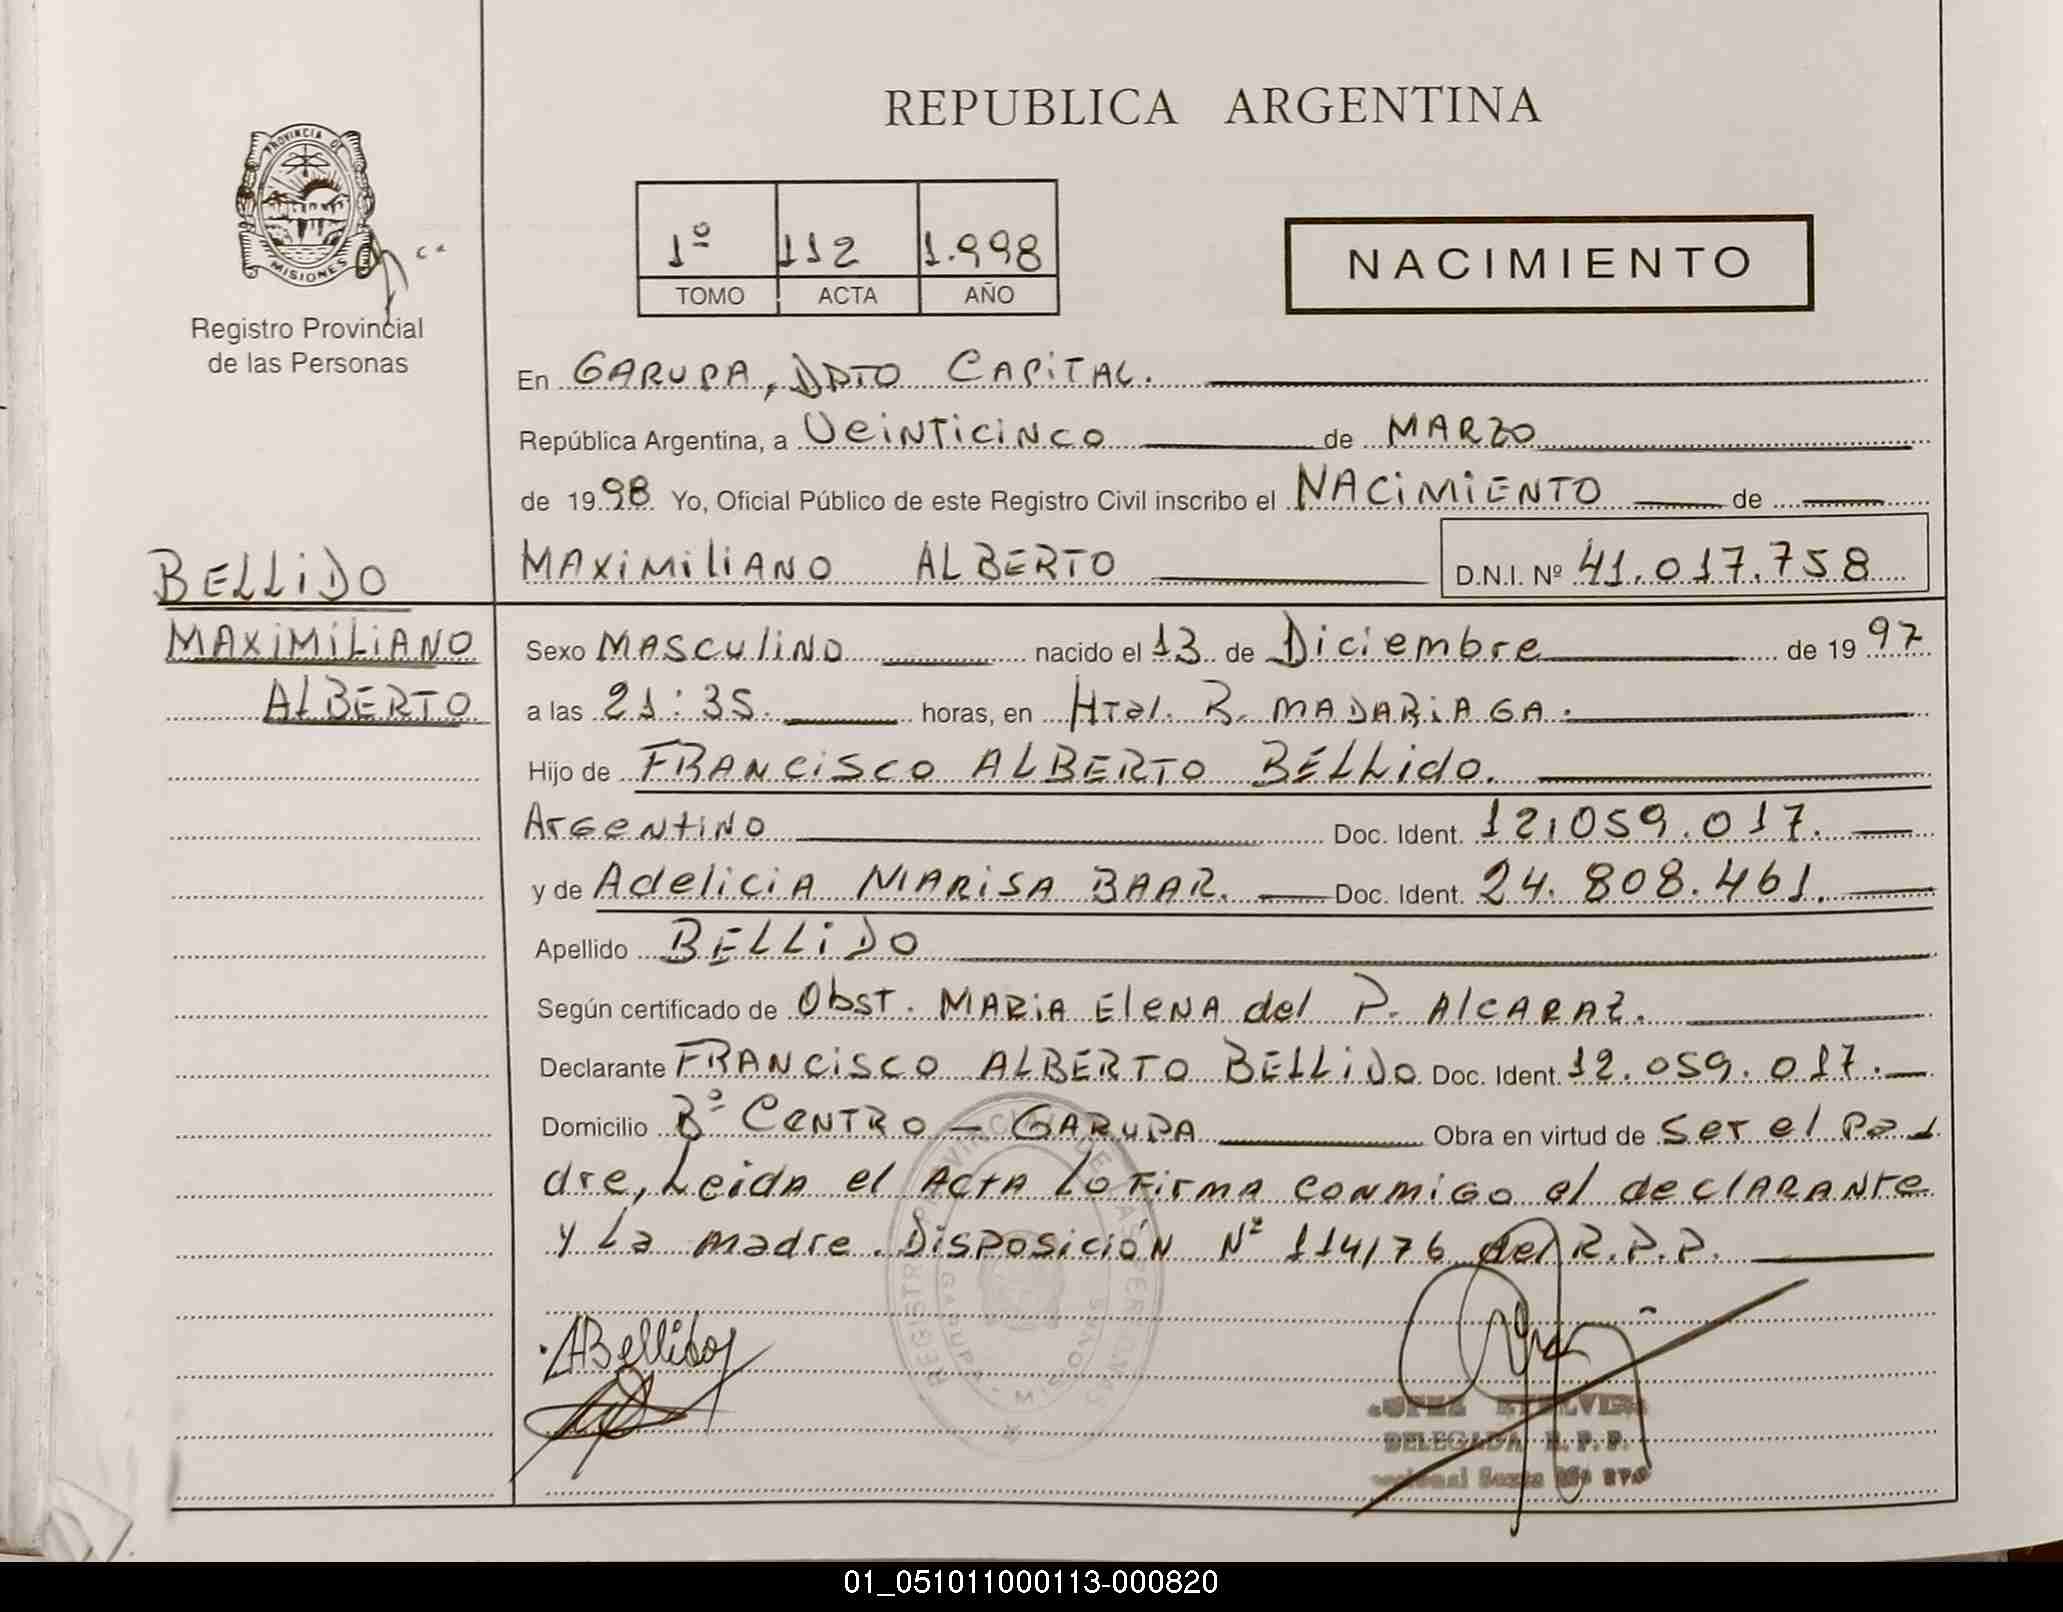 REPUBLICA ARGENTINA
PROVINCIA DE
MISIONES
Registro Provincial
de las Personas
1º 112 1.998
TOMO ACTA AÑO
NACIMIENTO
En GARUPA, DPTO CAPITAL.
República Argentina, a VeiNTiciNco de MARZO
de 1998 Yo, Oficial Público de este Registro Civil inscribo el NACiMiENTO de
BELLiDO MAXiMiliANO ALBERTO D.N.I. Nº 41.017.758
MAXiMiLiANO
ALBERTO
Sexo MASCuliNO nacido el 13 de Diciembre de 1997
a las 21:35. horas, en HTal. R. MADARiAGA.
Hijo de FRANCiSCO ALBERTO BELLido.
ArGeNtiNO Doc. Ident. 12.059.017.
y de AdeliciA MARiSA BAAR. Doc. Ident. 24.808.461.
Apellido BELLiDO
Según certificado de Obst. MARiA EleNA del P. AlCARAZ.
Declarante FRANCiSCO ALBERTO BELLiDO Doc. Ident. 12.059.017.
Domicilio Bº CeNTRO - GARUPA Obra en virtud de Ser el Pa
dre, Leida el ActA Lo FirmA conmiGo el declARANte
y La madre. DisPosicióN Nº 114/76 del R.P.P.
REGISTRO PROVINCIAL DE LAS PERSONAS
GARUPA - MISIONES
ABellido
DELEGADA R.P.P.
01_051011000113-000820